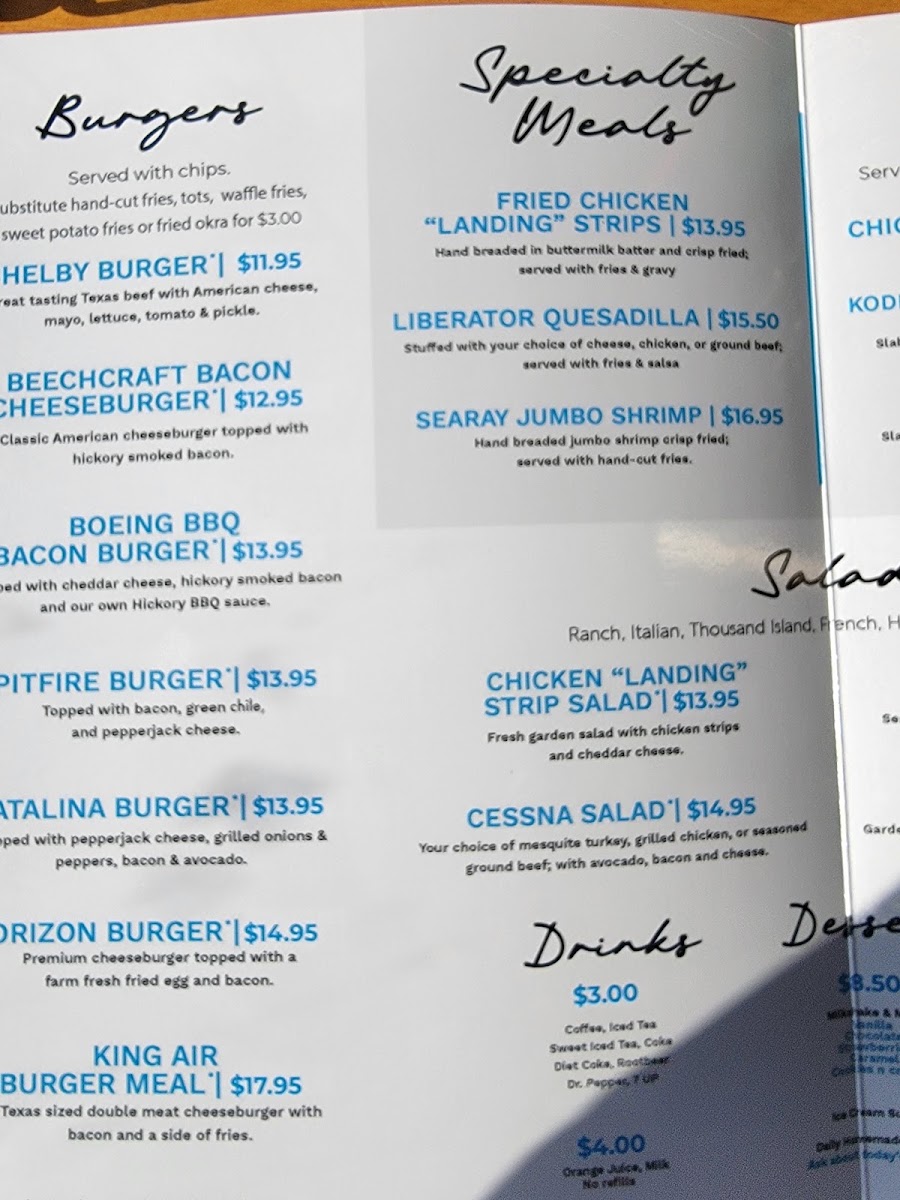 Burgers
Served with chips.
ubstitute hand-cut fries, tots, waffle fries,
sweet potato fries or fried okra for $3.00
HELBY BURGER*| $11.95
reat tasting Texas beef with American cheese,
mayo, lettuce, tomato & pickle.
BEECHCRAFT BACON
CHEESEBURGER*| $12.95
Classic American cheeseburger topped with
hickory smoked bacon.
BOEING BBQ
BACON BURGER*| $13.95
ped with cheddar cheese, hickory smoked bacon
and our own Hickory BBQ sauce.
PITFIRE BURGER*| $13.95
Topped with bacon, green chile,
and pepperjack cheese.
ATALINA BURGER*| $13.95
pped with pepperjack cheese, grilled onions &
peppers, bacon & avocado.
ORIZON BURGER*| $14.95
Premium cheeseburger topped with a
farm fresh fried egg and bacon.
KING AIR
BURGER MEAL*| $17.95
Texas sized double meat cheeseburger with
bacon and a side of fries.
Specialty
Meals
FRIED CHICKEN
“LANDING” STRIPS | $13.95
Hand breaded in buttermilk batter and crisp fried;
served with fries & gravy
LIBERATOR QUESADILLA | $15.50
Stuffed with your choice of cheese, chicken, or ground beef;
served with fries & salsa
SEARAY JUMBO SHRIMP | $16.95
Hand breaded jumbo shrimp crisp fried;
served with hand-cut fries.
Salad
Ranch, Italian, Thousand Island, French, H
CHICKEN “LANDING”
STRIP SALAD*| $13.95
Fresh garden salad with chicken strips
and cheddar cheese.
CESSNA SALAD*| $14.95
Your choice of mesquite turkey, grilled chicken, or seasoned
ground beef; with avocado, bacon and cheese.
Drinks
$3.00
Coffee, Iced Tea
Sweet Iced Tea, Coke
Diet Coke, Rootbeer
Dr. Pepper, 7 UP
$4.00
Orange Juice, Milk
No refills
Serv
CHIC
KOD
Slab
Sla
Se
Garde
Desse
$8.50
Milkshake & M
Vanilla
Chocolate
Strawberri
Caramel
Cookies n c
Ice Cream Su
Daily Homemad
Ask about today'